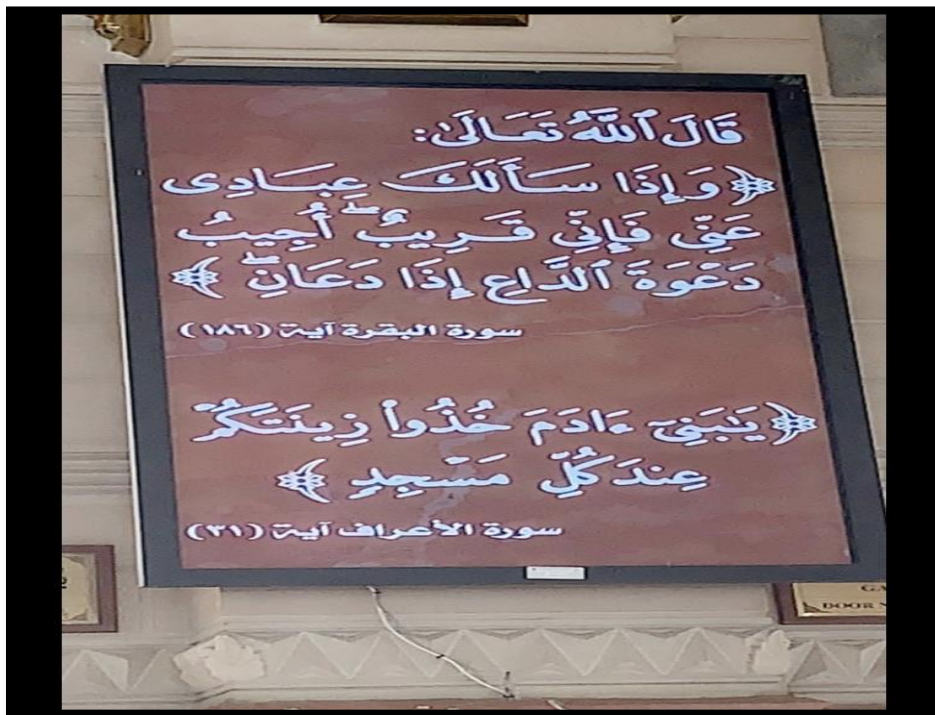 قَالَ ٱللَّهُ تَعَالَىٰ:
﴿وَإِذَا سَأَلَكَ عِبَادِى
عَنِّى فَإِنِّى قَرِيبٌۖ أُجِيبُ
دَعْوَةَ ٱلدَّاعِ إِذَا دَعَانِۖ﴾
سورة البقرة آية (١٨٦)
﴿يَـٰبَنِىٓ ءَادَمَ خُذُوا۟ زِينَتَكُمْ
عِندَ كُلِّ مَسْجِدٍ﴾
سورة الأعراف آية (٣١)
DOOR